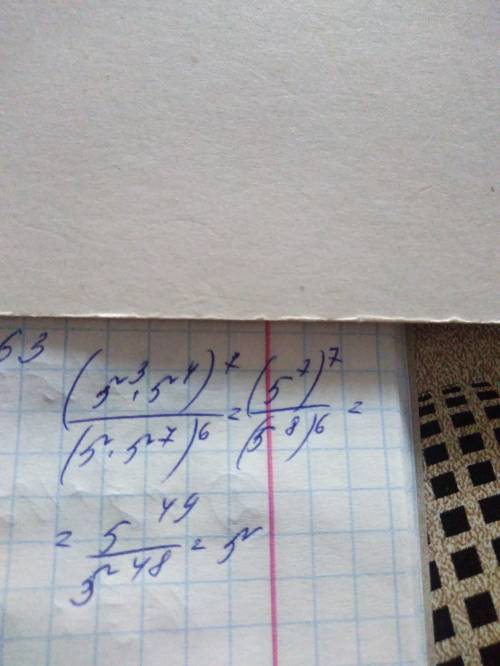 63
(5³·5⁴)⁷/(5·5⁷)⁶ = (5⁷)⁷/(5⁸)⁶ =
= 5⁴⁹/5⁴⁸ = 5